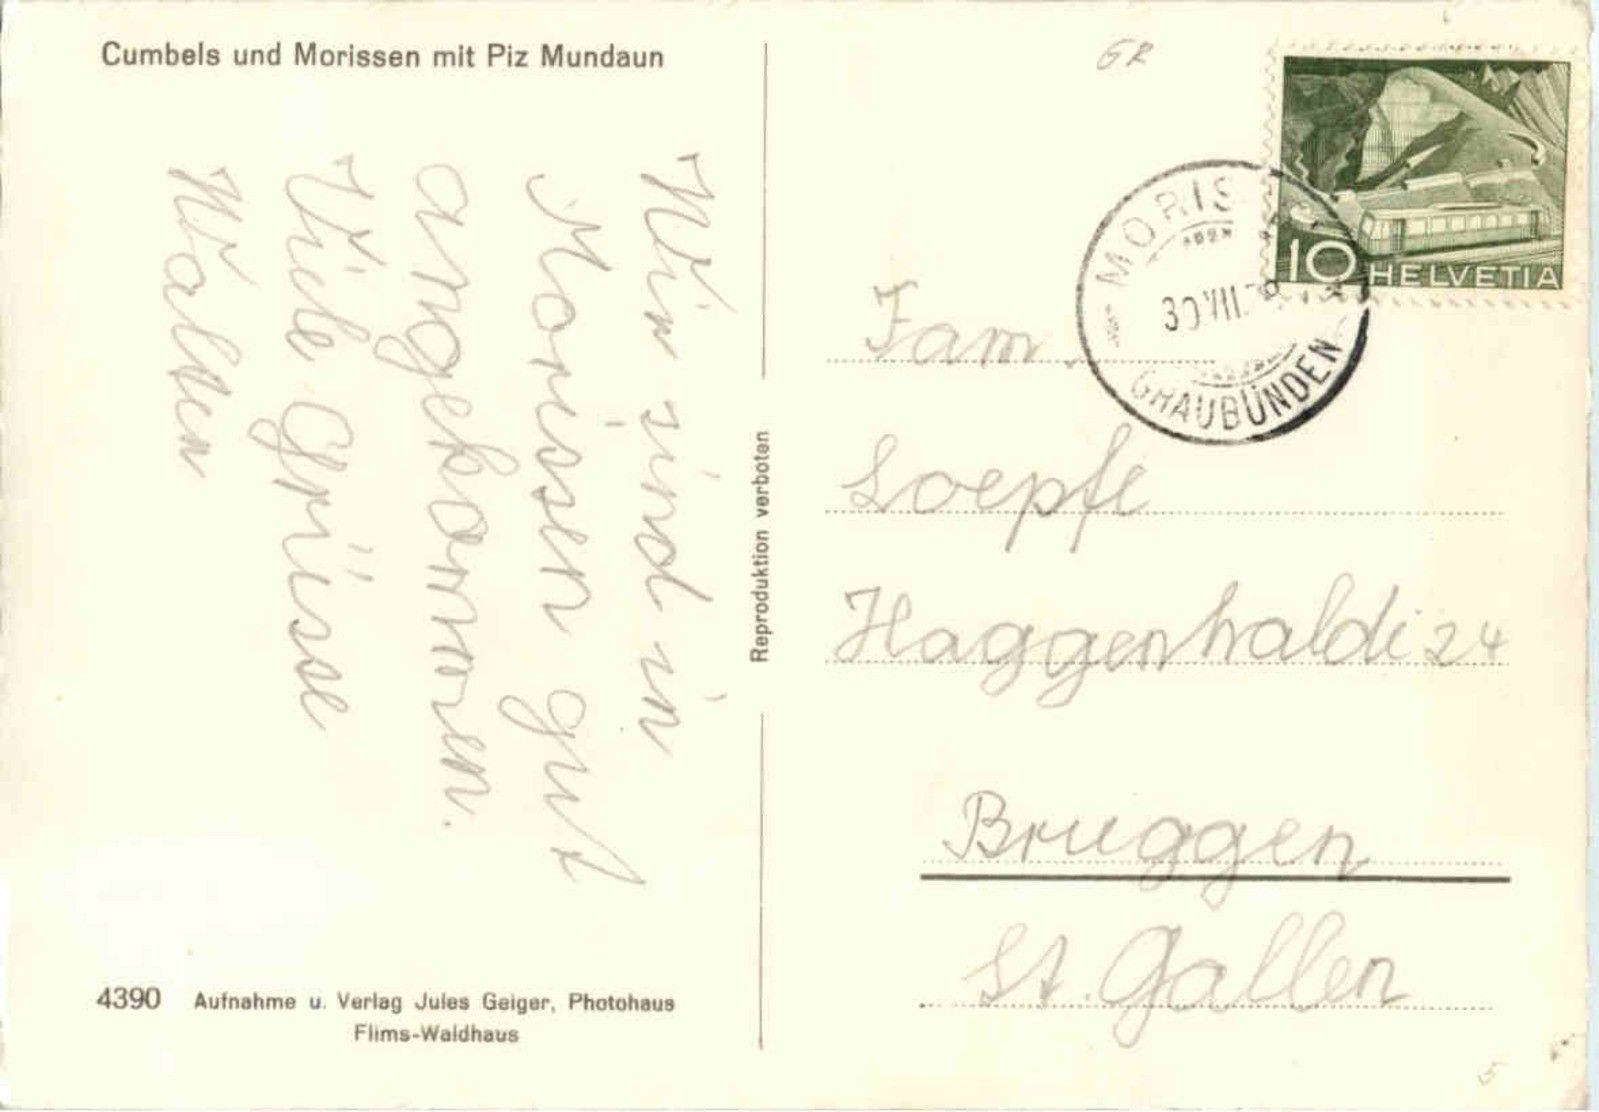 Cumbels und Morissen mit Piz Mundaun
Wir sind in
Morissen gut
angekommen.
Viele Grüsse
Walter
4390 Aufnahme u. Verlag Jules Geiger, Photohaus
Flims-Waldhaus
Reproduktion verboten
GR
10 HELVETIA
MORIS
30 VII.
GRAUBÜNDEN
Fam.
Loepfe
Haggenhaldi 24
Bruggen
St. Gallen
5